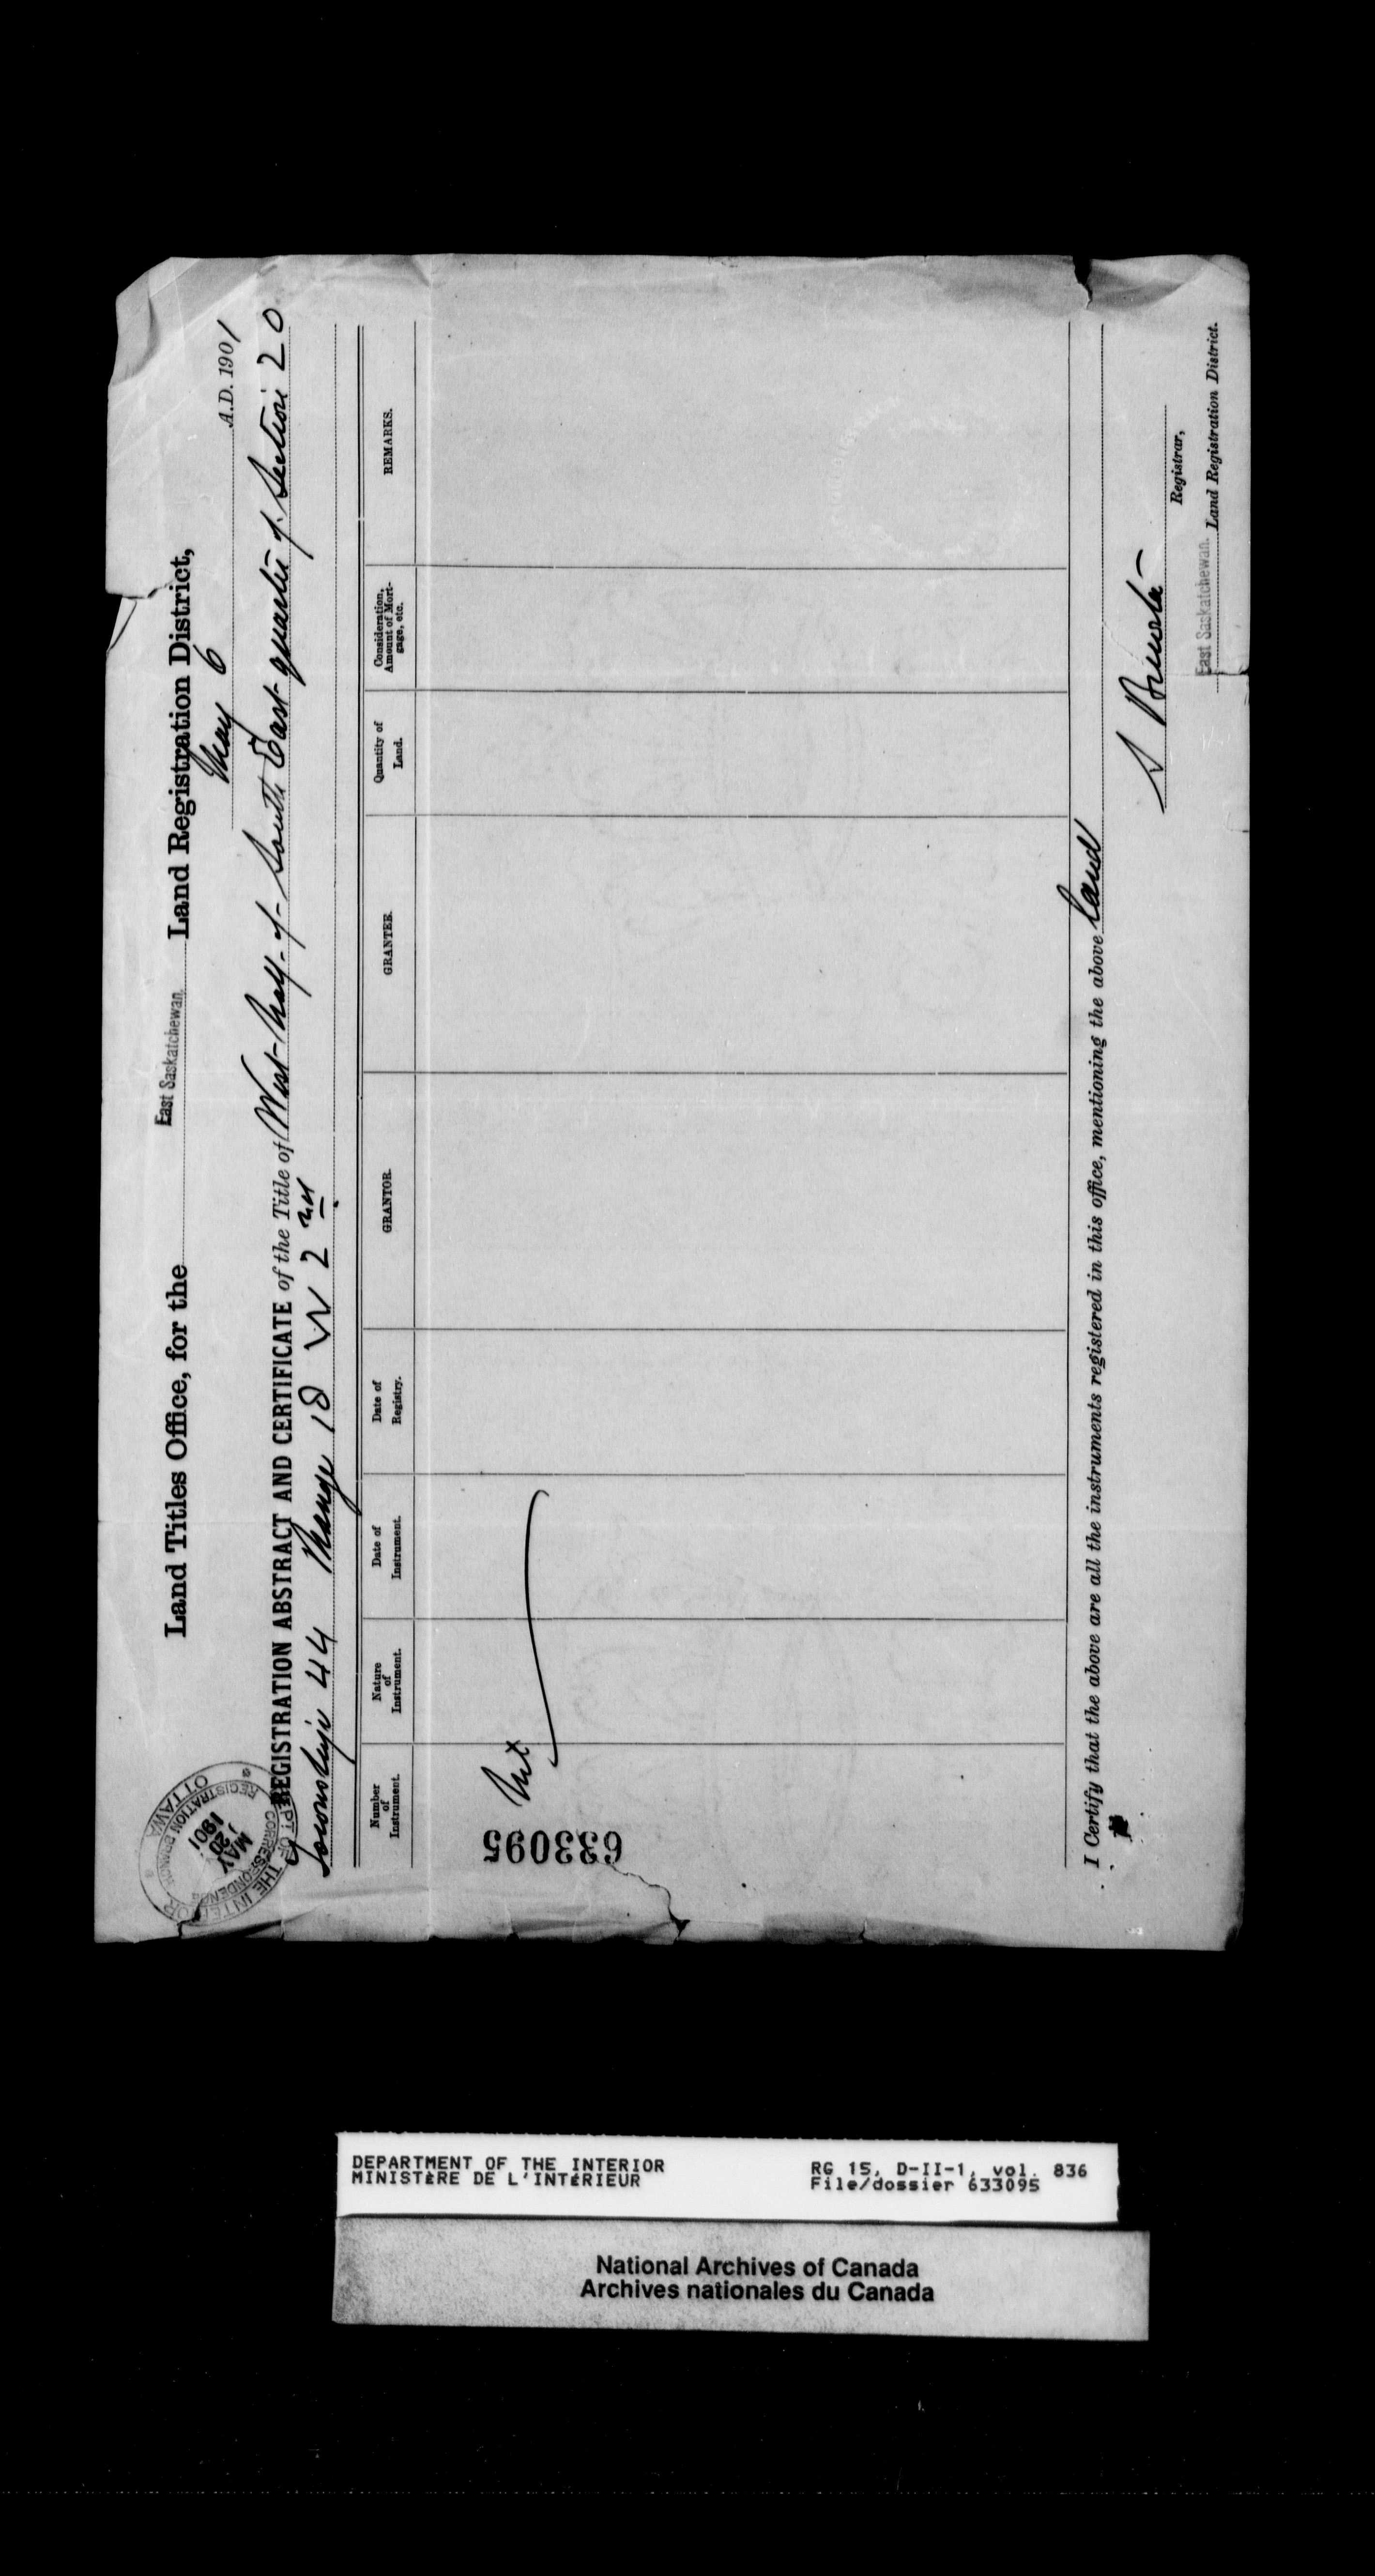 Land Titles Office, for the East Saskatchewan. Land Registration District,
May 6 A.D. 1901
REGISTRATION ABSTRACT AND CERTIFICATE of the Title of West half of South East quarter of Section 20
Township 44 Range 18 W 2nd
DEPT OF THE INTERIOR OTTAWA
CORRESPONDENCE REGISTRATION BRANCH
MAY 20 1901
Number of Instrument.
Nature of Instrument.
Date of Instrument.
Date of Registry.
GRANTOR.
GRANTEE.
Quantity of Land.
Consideration, Amount of Mortgage, etc.
REMARKS.
633095
I Certify that the above are all the instruments registered in this office, mentioning the above land
Registrar,
East Saskatchewan. Land Registration District.
DEPARTMENT OF THE INTERIOR RG 15, D-II-1, vol. 836
MINISTÈRE DE L'INTÉRIEUR File/dossier 633095
National Archives of Canada
Archives nationales du Canada